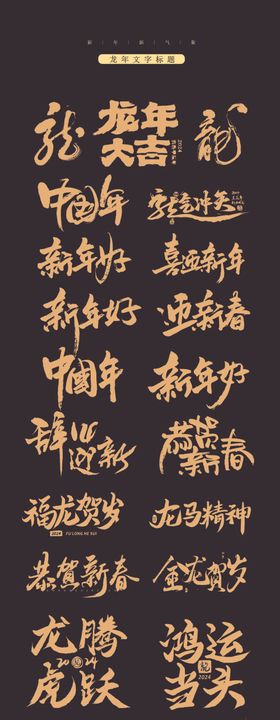 新年新气象
龙年文字标题
龍
龙年
大吉
2024
龍
中国年
新年好
喜迎新年
新年好
迎新春
中國年
新年好
辞旧
迎新
恭贺
新春
福龙贺岁
2024 FU LONG HE SUI
龙马精神
恭贺新春
金龙贺岁
龙腾
2024
虎跃
鸿运
龍 2024
当头